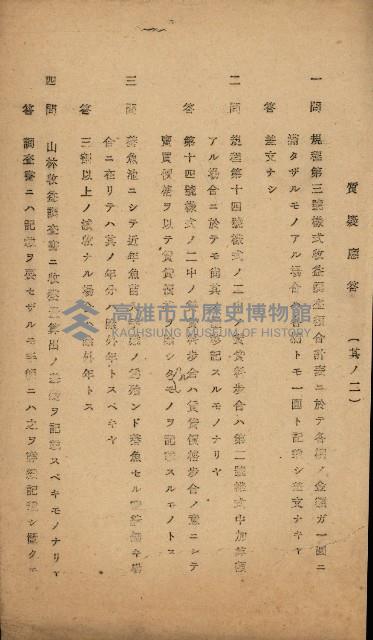 質疑應答 (其ノ二)
一問 規程第三號樣式收益調査額合計表ニ於テ各欄ノ金額ガ一圓ニ
滿タザルモノアル場合トモ一圓ト記載シ差支ナキヤ
答 差支ナシ
二問 規程第十四號樣式ノ二中ノ賃貸料步合ハ第二號樣式中加算額
アル場合ニ於テモ記スルモノナリヤ
答 第十四號樣式ノ二中ノ料步合ハ賃貸價格步合ノ意ニシテ
賣買價格ヲ以テ賃貸價格ヲシタルモノヲ記載スルモノトス
三問 養魚池ニシテ近年魚苗ノ爲殆ンド養魚セル場
合ニ在リテハ其ノ年分ハ除外年トスベキヤ
答 三割以上ノ減收ナル場合ハ除外年トス
四問 山林收益調査書ニ收益算出ノヲ記載スベキモノナリヤ
答 調査書ニハ記載ヲ要セザルモニハ之ヲ記載シ置クヲ
高雄市立歷史博物館
KAOHSIUNG MUSEUM OF HISTORY